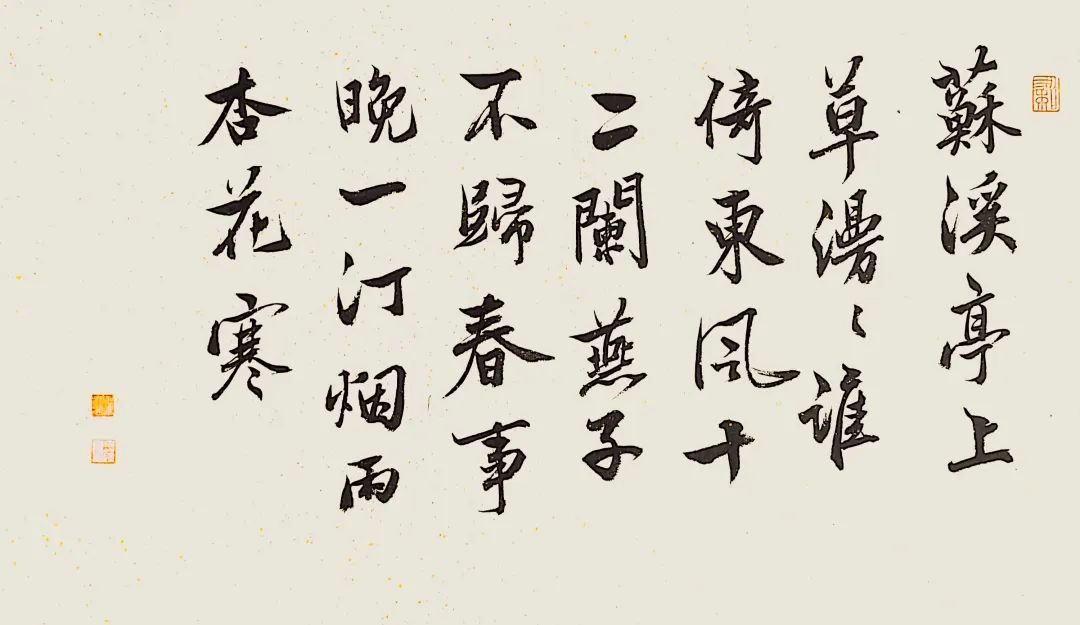 蘇溪亭上
草漫〻誰
倚東風十
二闌燕子
不歸春事
晚一汀烟雨
杏花寒